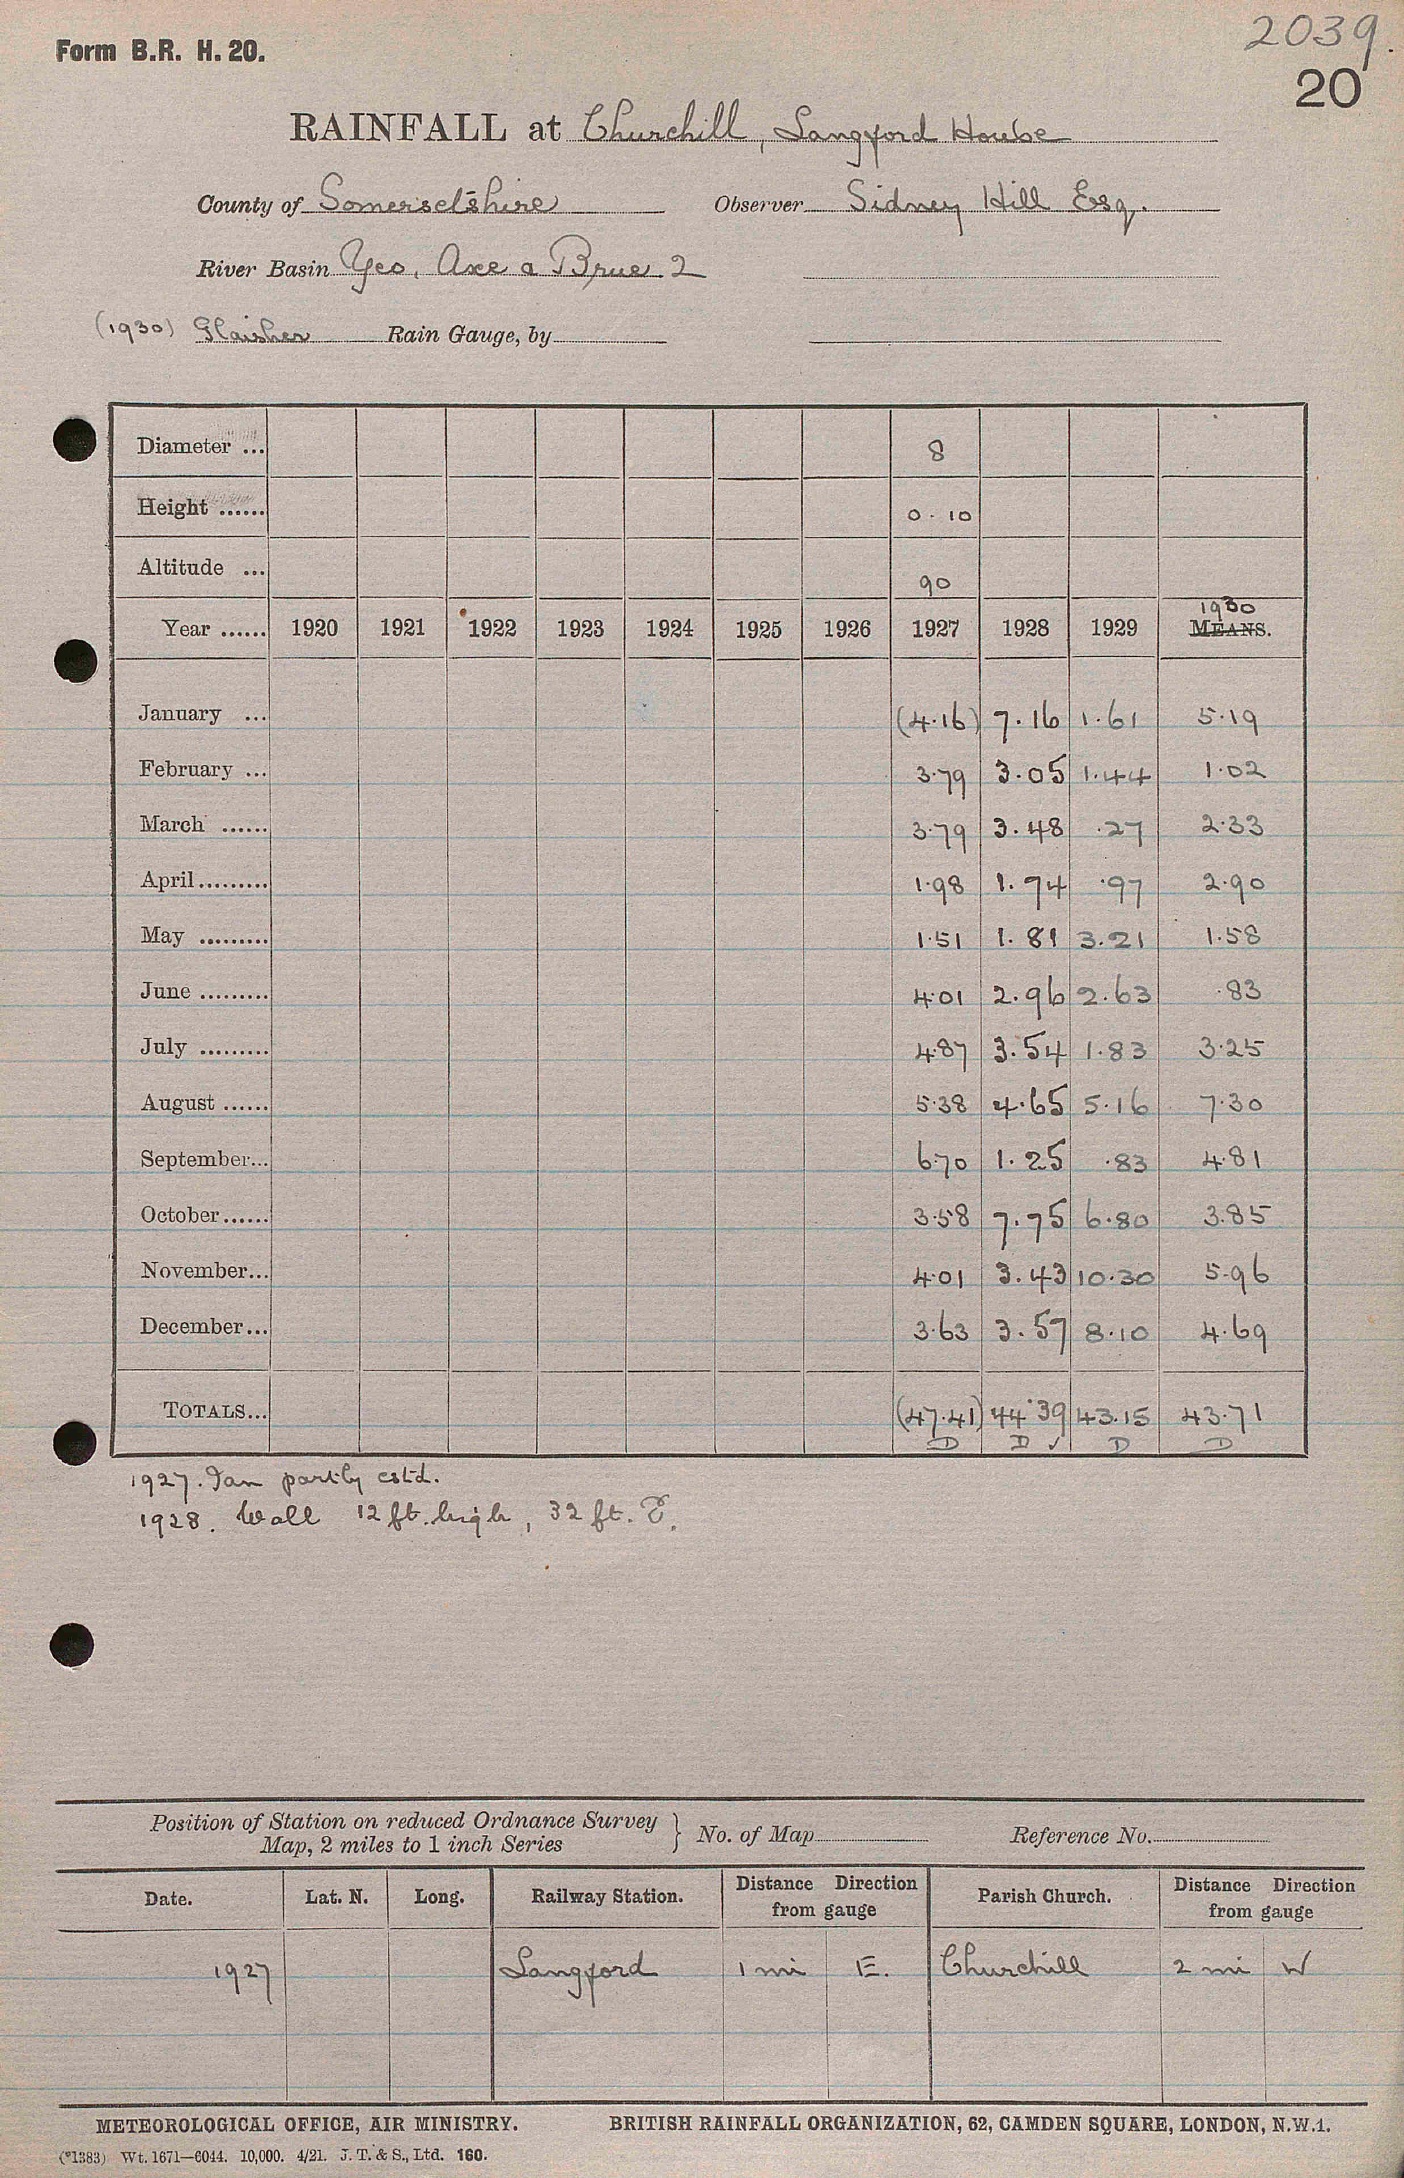 2039.
Form B.R. H. 20.
20
RAINFALL at Churchill, Langford House
County of Somersetshire Observer Sidney Hill Esq.
River Basin Yeo, Axe a Brue 2
(1930) Glaisher Rain Gauge, by
Diameter ... 8
Height ...... 0.10
Altitude ... 90
1930
Year ...... 1920 1921 1922 1923 1924 1925 1926 1927 1928 1929 MEANS.
January ... (4.16) 7.16 1.61 5.19
February ... 3.79 3.05 1.44 1.02
March ...... 3.79 3.48 .27 2.33
April ......... 1.98 1.74 .97 2.90
May ......... 1.51 1.81 3.21 1.58
June ......... 4.01 2.96 2.63 .83
July ......... 4.87 3.54 1.83 3.25
August ...... 5.38 4.65 5.16 7.30
September... 6.70 1.25 .83 4.81
October...... 3.58 7.75 6.80 3.85
November... 4.01 3.43 10.30 5.96
December... 3.63 3.57 8.10 4.69
TOTALS... (47.41) 44.39 43.15 43.71
D D ✓ D D
1927. Jan partly estd.
1928. Wall 12 ft. high, 32 ft. E.
Position of Station on reduced Ordnance Survey
Map, 2 miles to 1 inch Series } No. of Map Reference No.
Date. Lat. N. Long. Railway Station. Distance Direction from gauge Parish Church. Distance Direction from gauge
1927 Langford 1 mi E. Churchill 2 mi W
METEOROLOGICAL OFFICE, AIR MINISTRY. BRITISH RAINFALL ORGANIZATION, 62, CAMDEN SQUARE, LONDON, N.W.1.
(*1383) Wt. 1671—6044. 10,000. 4/21. J. T. & S., Ltd. 160.